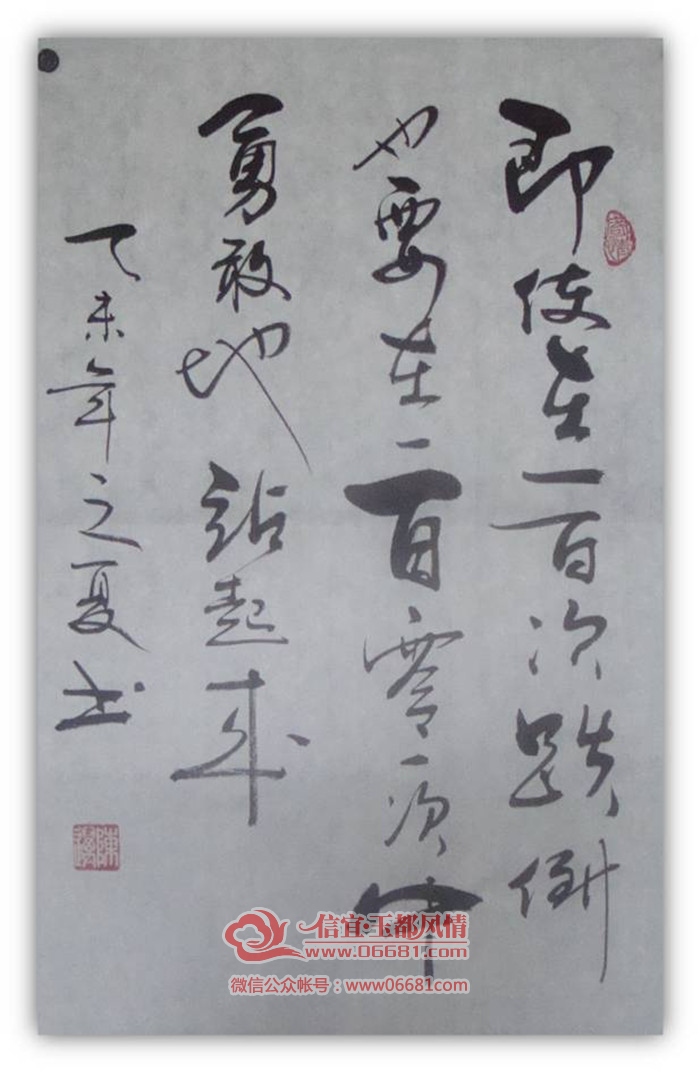 即使在一百次跌倒
也要在一百零一次中
勇敢地站起来
乙未年之夏书
信宜·玉都风情
www.06681.com
微信公众帐号：www06681com